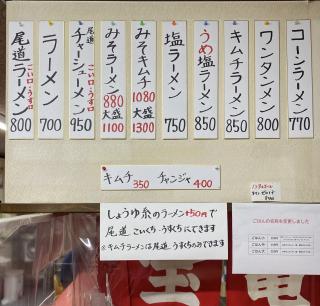 コーンラーメン
770
ワンタンメン
800
キムチラーメン
850
うめ塩ラーメン
850
塩ラーメン
750
みそキムチ
ラーメン
1080
大盛
1300
みそラーメン
880
大盛
1100
尾道
チャーシューメン
こい口・うす口
950
ラーメン
700
尾道ラーメン
こい口・うす口
800
キムチ 350 チャンジャ 400
しょうゆ系のラーメン+50円で
尾道 こいくち・うすくちにできます
※キムチラーメンは尾道 うすくちのみできます
ごはんの名称を変更しました